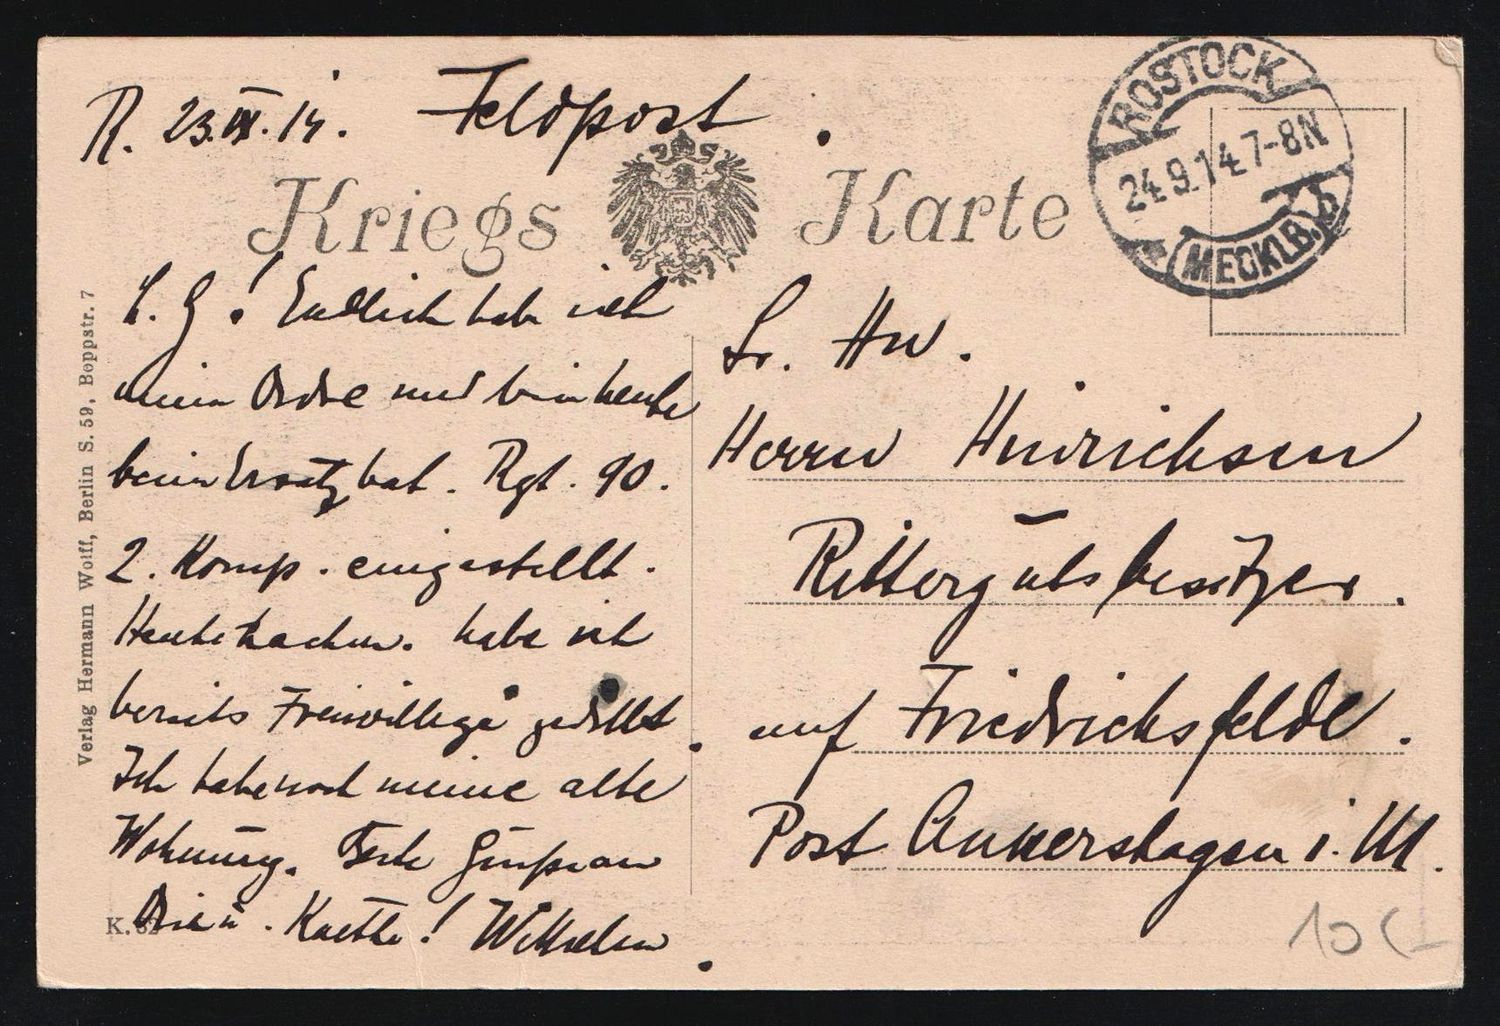 R. 23.IX.14. Feldpost.
Kriegs Karte
ROSTOCK
24.9.14.7-8N
(MECKLB.)
L. G! Endlich habe ich
meine Ordre und bin heute
beim Ersatzbat. Rgt. 90.
2. Komp. eingestellt.
Heute habe ich
bereits Freiwillige gedrillt.
Ich habe noch meine alte
Wohnung. Beste Grüsse an
Dich u. Kaethe! Wilhelm.
Sr. Hw.
Herrn Hinrichsen
Rittergutsbesitzer.
auf Friedrichsfelde.
Post Ankershagen i. M.
Verlag Hermann Wolff, Berlin S. 59, Boppstr. 7